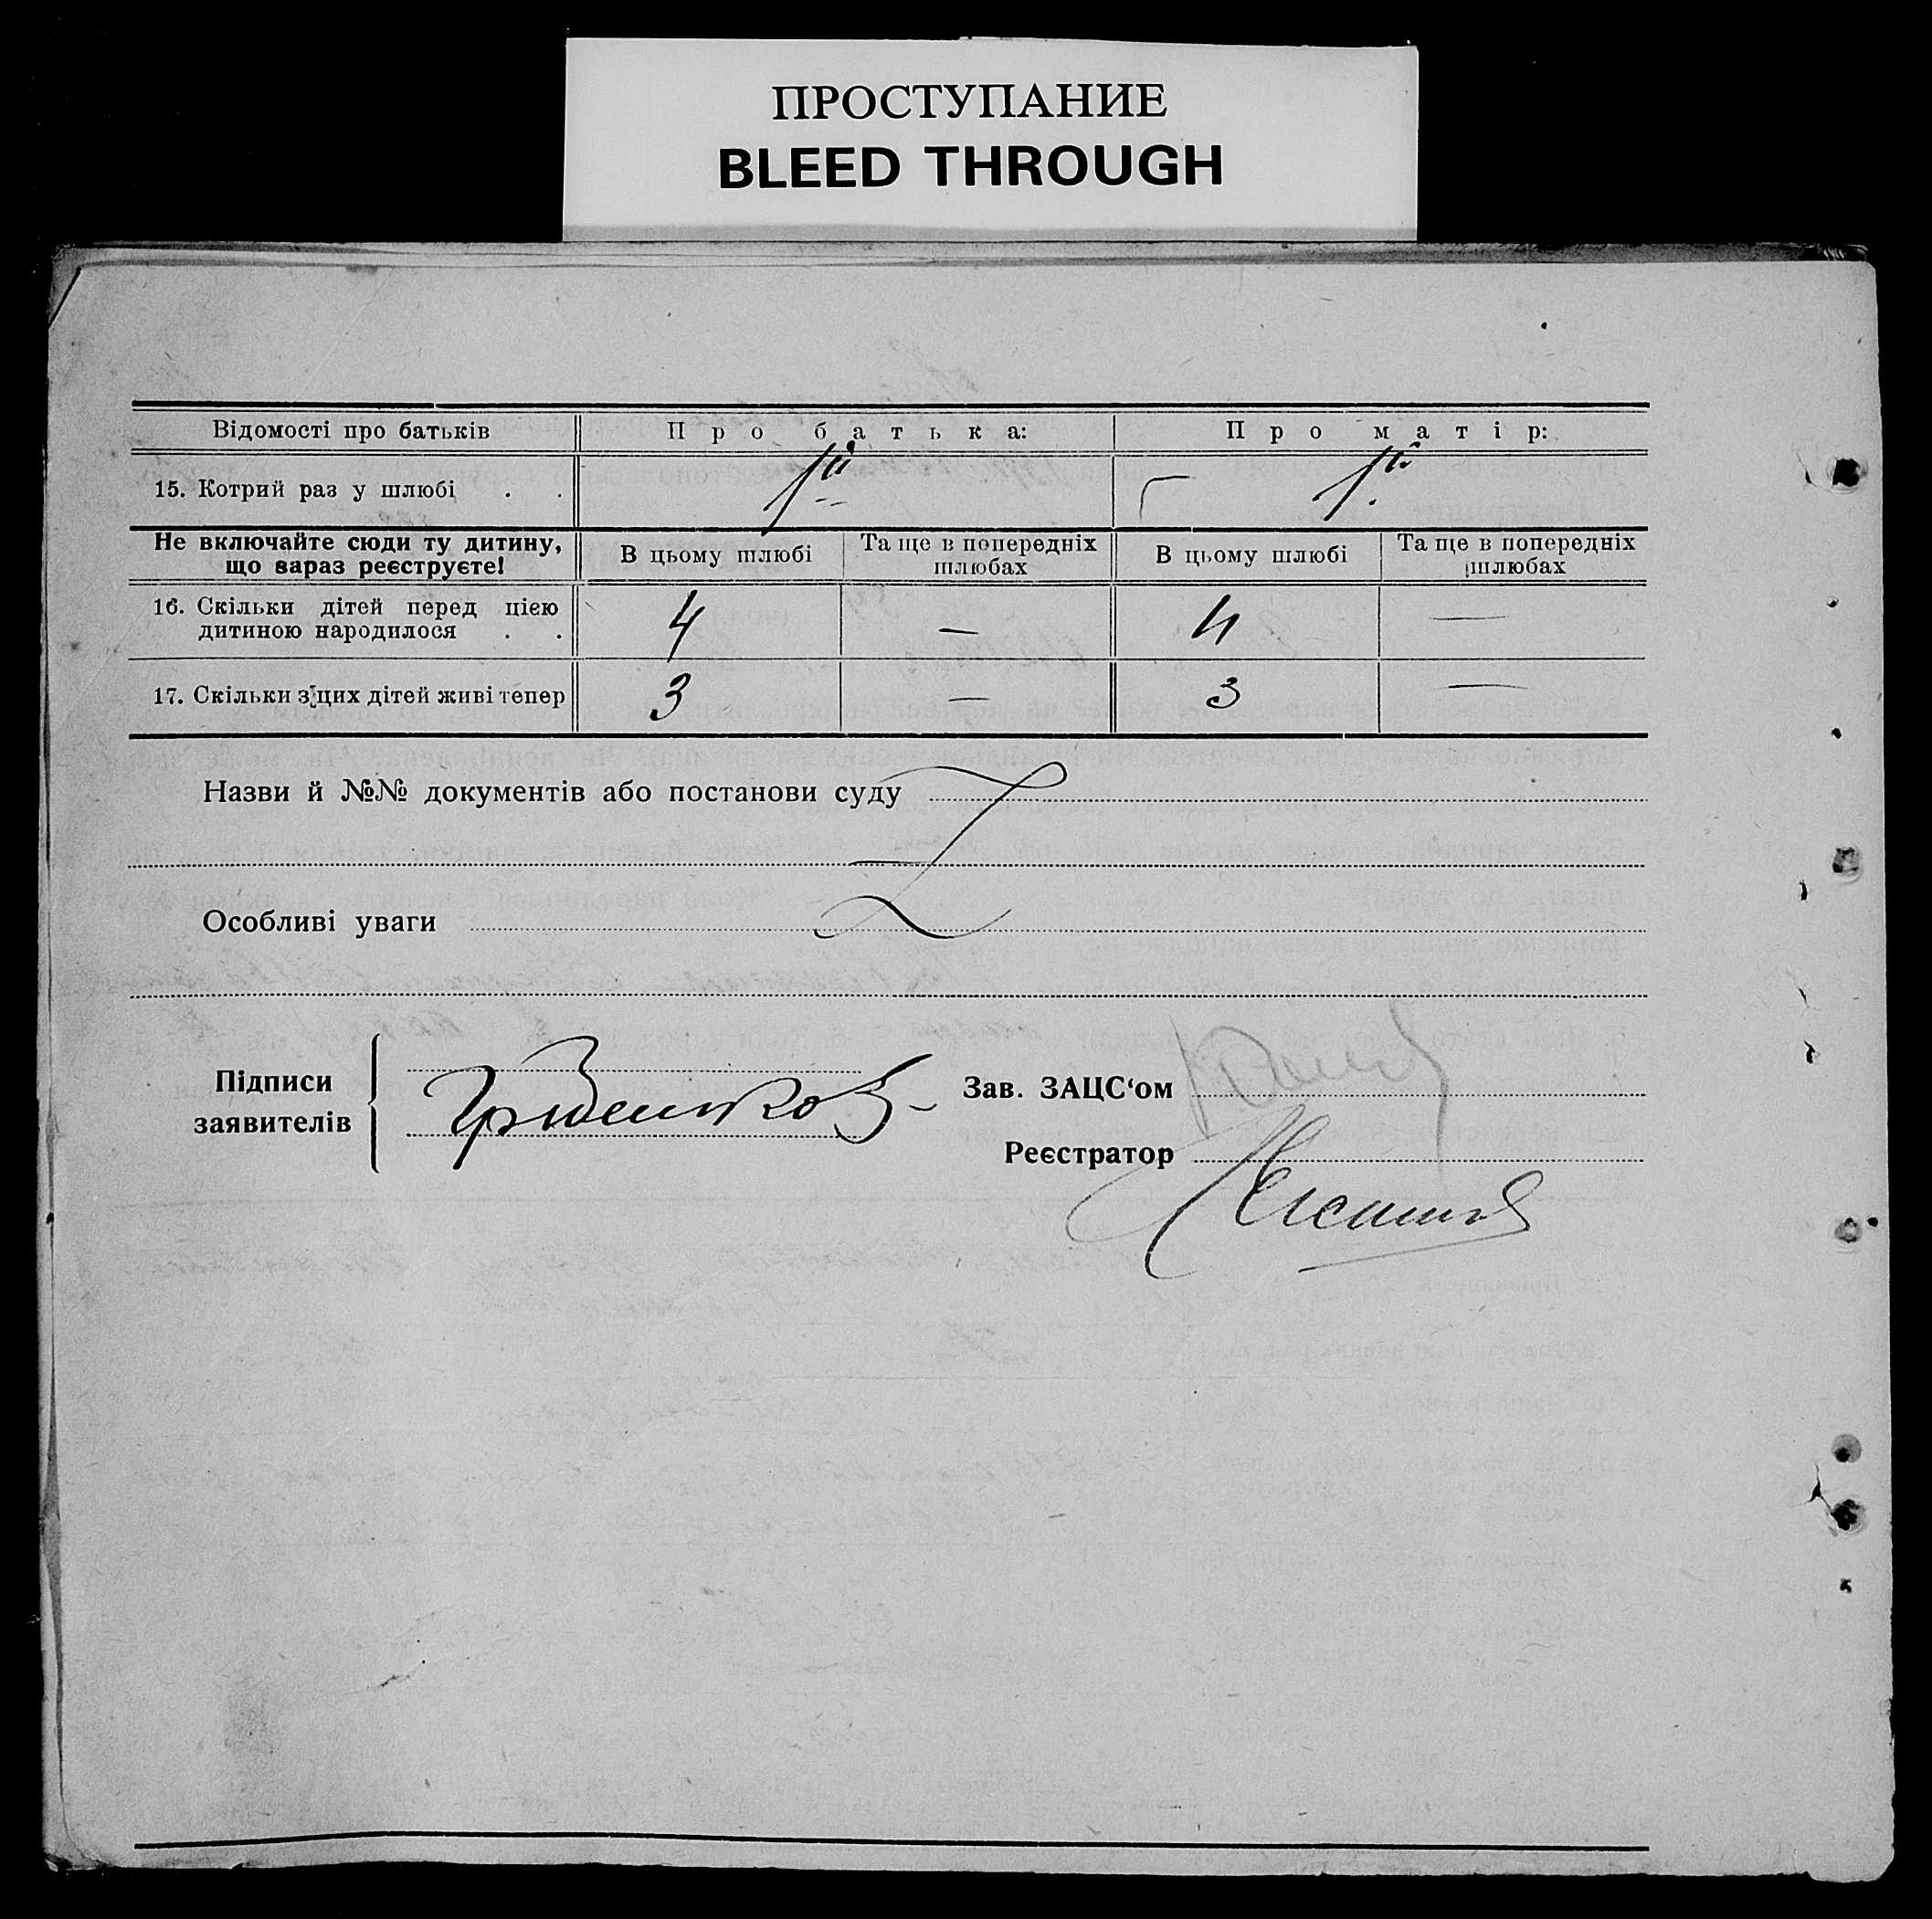 ПРОСТУПАНИЕ
BLEED THROUGH
Відомості про батьків Про батька: Про матір:
15. Котрий раз у шлюбі . . 1й 1й
Не включайте сюди ту дитину, що зараз реєструєте! В цьому шлюбі Та ще в попередніх шлюбах В цьому шлюбі Та ще в попередніх шлюбах
16. Скільки дітей перед цією дитиною народилося . . 4 — 4 —
17. Скільки з цих дітей живі тепер 3 — 3 —
Назви й №№ документів або постанови суду
Особливі уваги
Підписи заявителів
Зав. ЗАЦС‘ом
Реєстратор